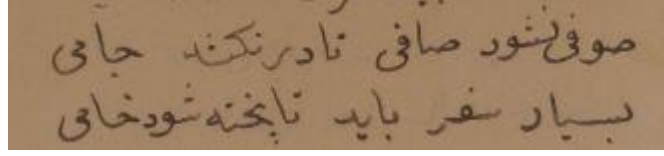 صوفی نشود صافی تا در نکشد جامی
بسیار سفر باید تا پخته شود خامی